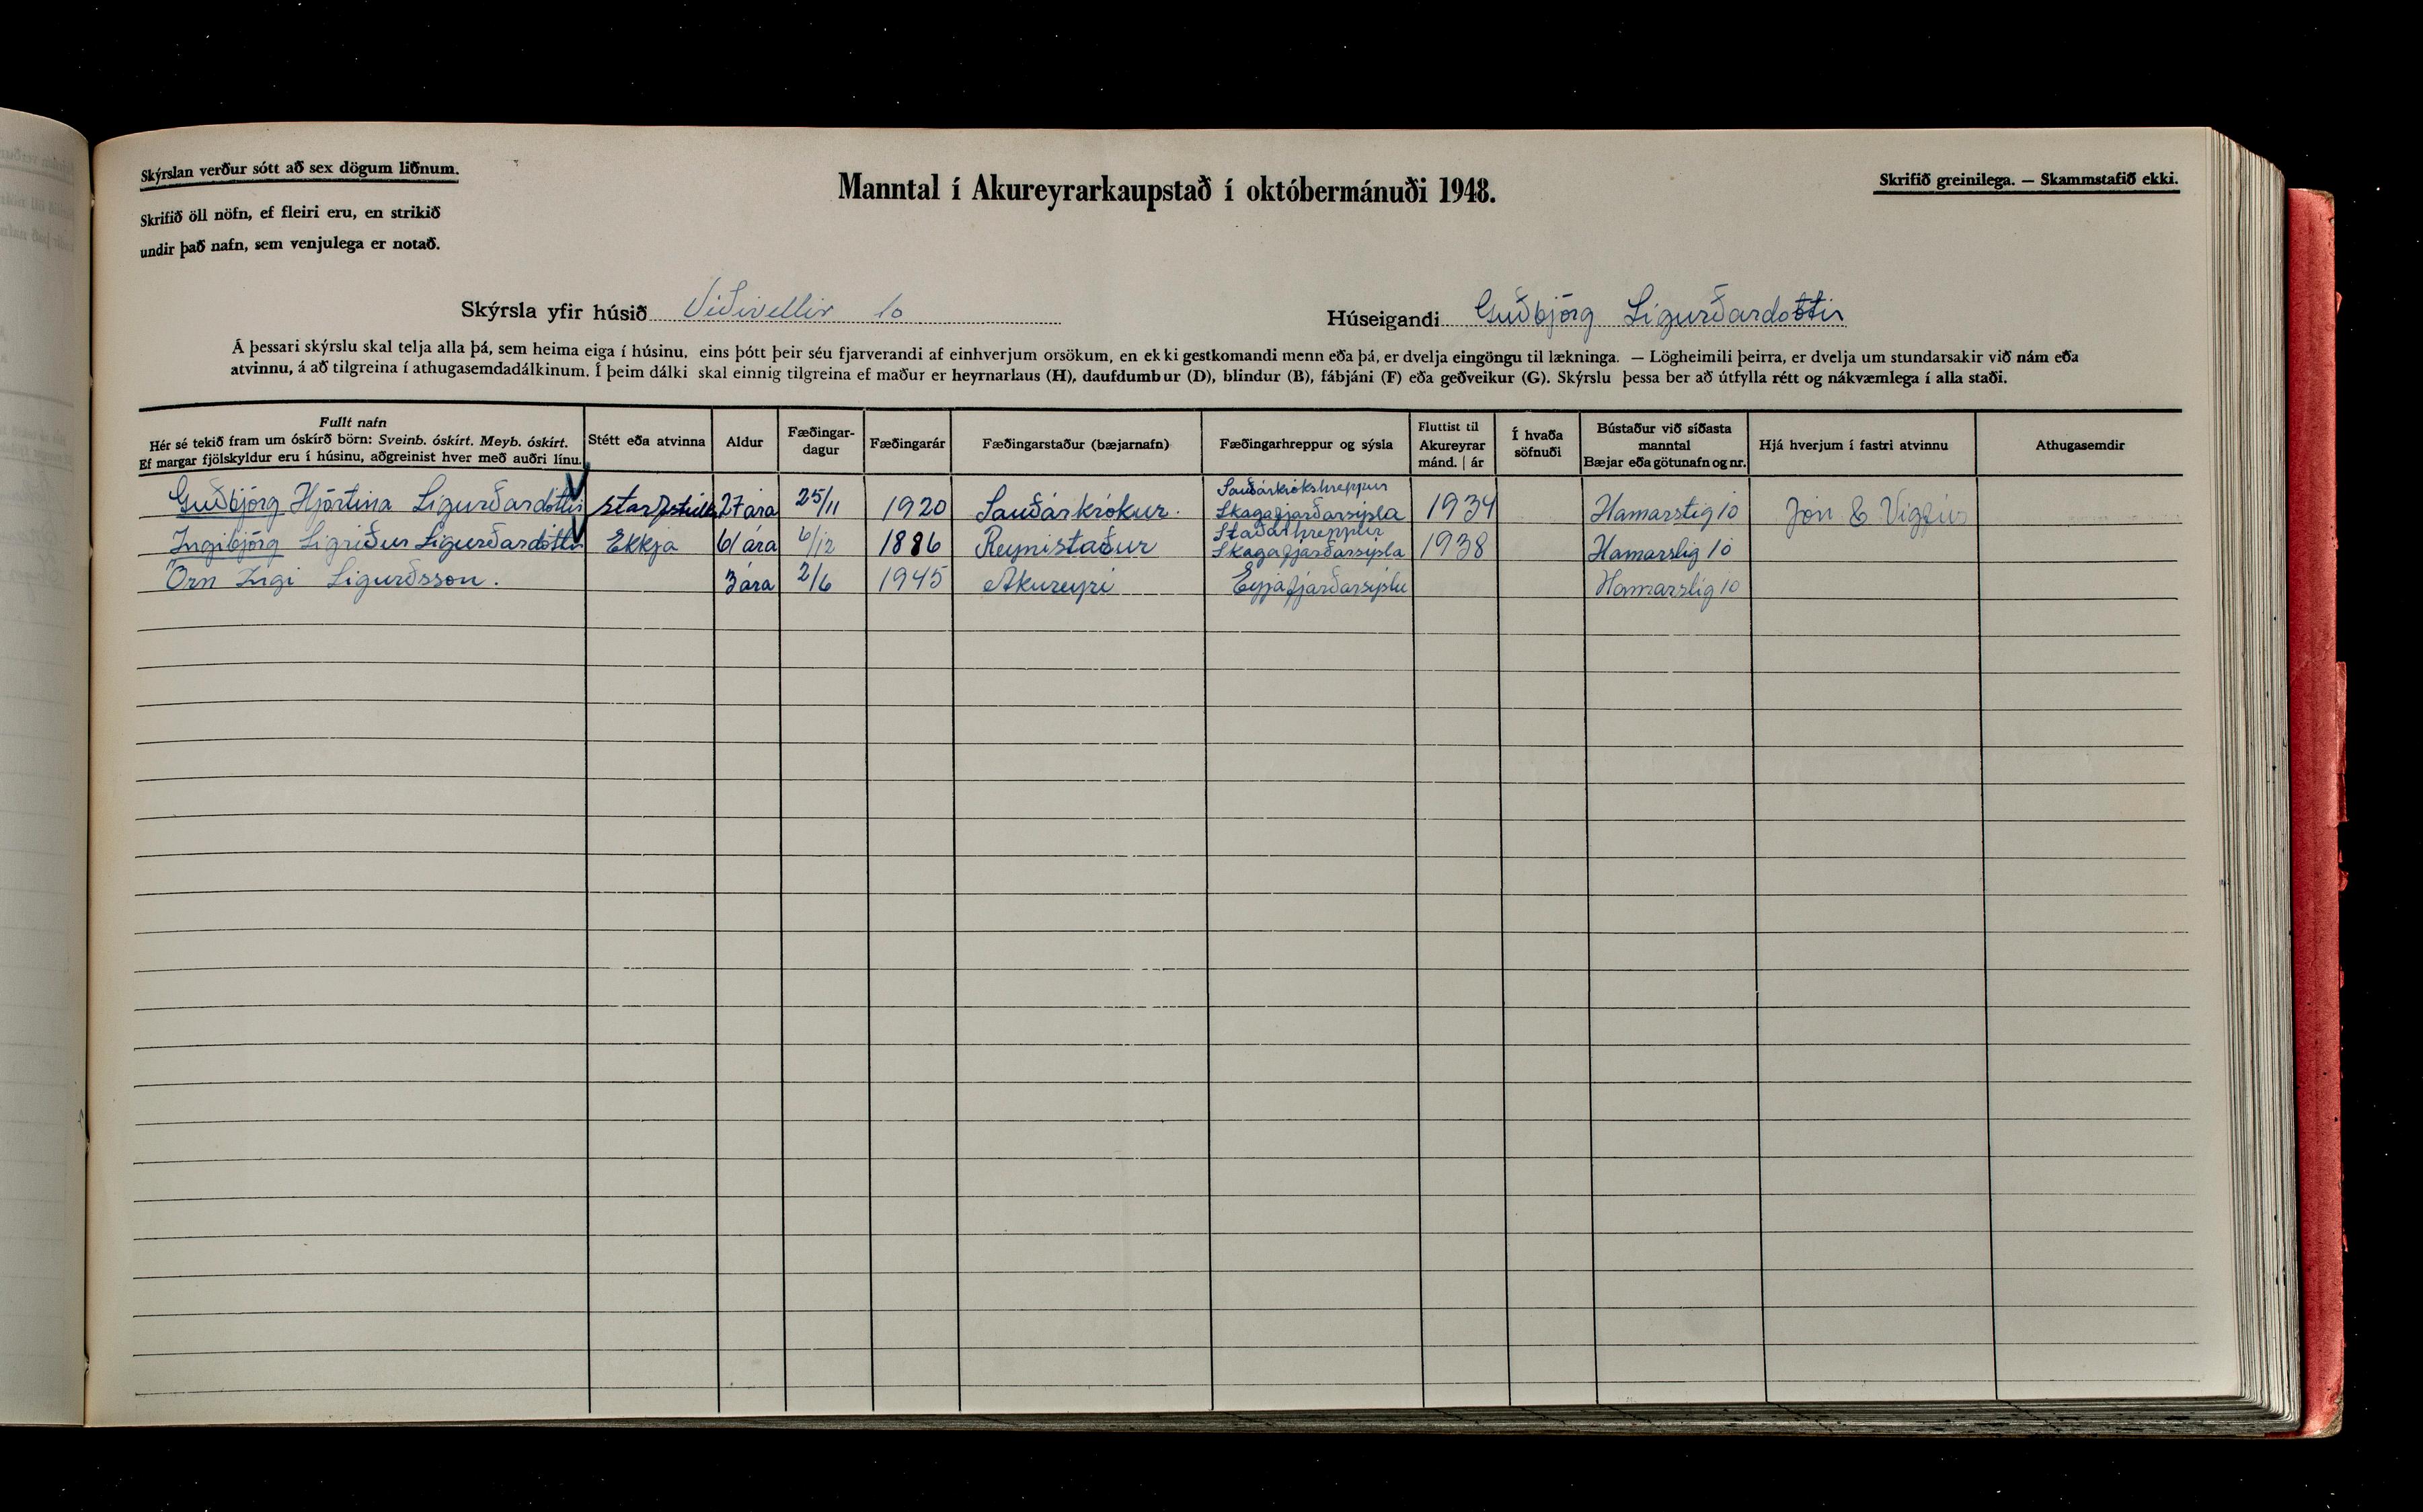 Skýrslan verður sótt að sex dögum liðnum.
Manntal í Akureyrarkaupstað í októbermánuði 1948.
Skrifið greinilega. — Skammstafið ekki.
Skrifið öll nöfn, ef fleiri eru, en strikið
undir það nafn, sem venjulega er notað.
Skýrsla yfir húsið Víðivellir 10
Húseigandi Guðbjörg Sigurðardóttir
Á þessari skýrslu skal telja alla þá, sem heima eiga í húsinu, eins þótt þeir séu fjarverandi af einhverjum orsökum, en ekki gestkomandi menn eða þá, er dvelja eingöngu til lækninga. — Lögheimili þeirra, er dvelja um stundarsakir við nám eða
atvinnu, á að tilgreina í athugasemdadálkinum. Í þeim dálki skal einnig tilgreina ef maður er heyrnarlaus (H), daufdumbur (D), blindur (B), fábjáni (F) eða geðveikur (G). Skýrslu þessa ber að útfylla rétt og nákvæmlega í alla staði.
Fullt nafn
Hér sé tekið fram um óskírð börn: Sveinb. óskírt. Meyb. óskírt.
Ef margar fjölskyldur eru í húsinu, aðgreinist hver með auðri línu.
Stétt eða atvinna
Aldur
Fæðingar-
dagur
Fæðingarár
Fæðingarstaður (bæjarnafn)
Fæðingarhreppur og sýsla
Fluttist til
Akureyrar
mánd. | ár
Í hvaða
söfnuði
Bústaður við síðasta
manntal
Bæjar eða götunafn og nr.
Hjá hverjum í fastri atvinnu
Athugasemdir
Guðbjörg Hjörtína Sigurðardóttir starfstúlka 27 ára 25/11 1920 Sauðárkrókur. Sauðárkrókshreppur Skagafjarðarsýsla 1934 Hamarstíg 10 Jón E Vigfús
Ingibjörg Sigríður Sigurðardóttir Ekkja 61 ára 6/12 1886 Reynistaður Staðarhreppur Skagafjarðarsýsla 1938 Hamarstíg 10
Örn Ingi Sigurðsson. 3 ára 2/6 1945 Akureyri Eyjafjarðarsýslu Hamarstíg 10